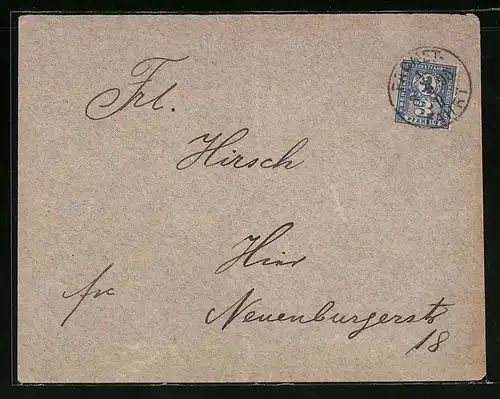 Frl.
Hirsch
Hier
fr
Neuenburgerstr
18